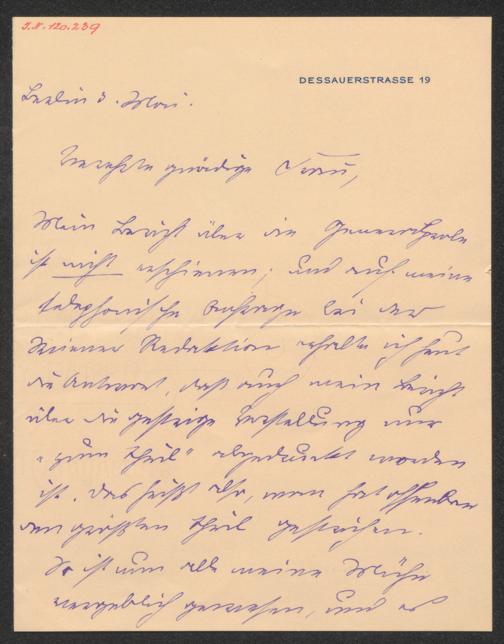 I.N. 120.239
DESSAUERSTRASSE 19
Berlin 3. Mai.
Verehrte gnädige Frau,
Mein Bericht über die Generalprobe
ist nicht erschienen; und auf meine
telephonische Anfrage bei der
Wiener Redaktion erhalte ich heut
die Antwort, daß auch mein Bericht
über die gestrige Vorstellung nur
"zum Theil" abgedruckt worden
ist. Das heißt also, man hat offenbar
den größten Theil gestrichen.
So ist nun alle meine Mühe
vergeblich gewesen, und es